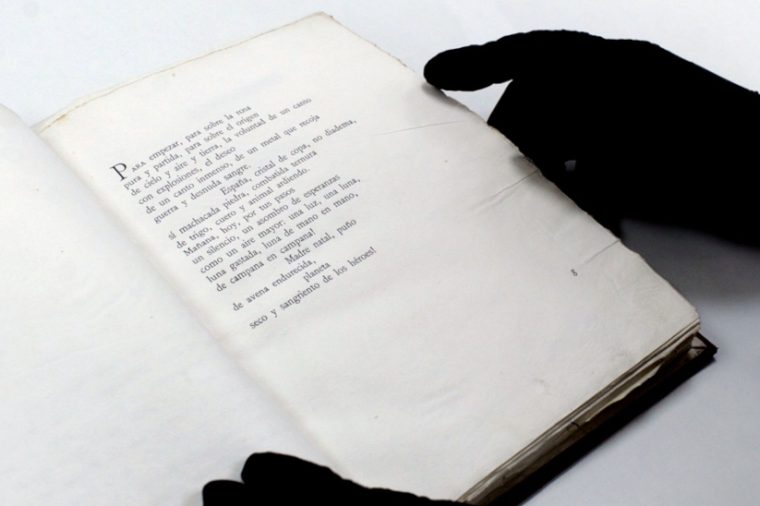 PARA empezar, para sobre la rosa
pura y partida, para sobre el origen
de cielo y aire y tierra, la voluntad de un canto
con explosiones, el deseo
de un canto inmenso, de un metal que recoja
guerra y desnuda sangre.
España, cristal de copa, no diadema,
sí machacada piedra, combatida ternura
de trigo, cuero y animal ardiendo.
Mañana, hoy, por tus pasos
un silencio, un asombro de esperanzas
como un aire mayor: una luz, una luna,
luna gastada, luna de mano en mano,
de campana en campana!
Madre natal, puño
de avena endurecida,
planeta
seco y sangriento de los héroes!
8